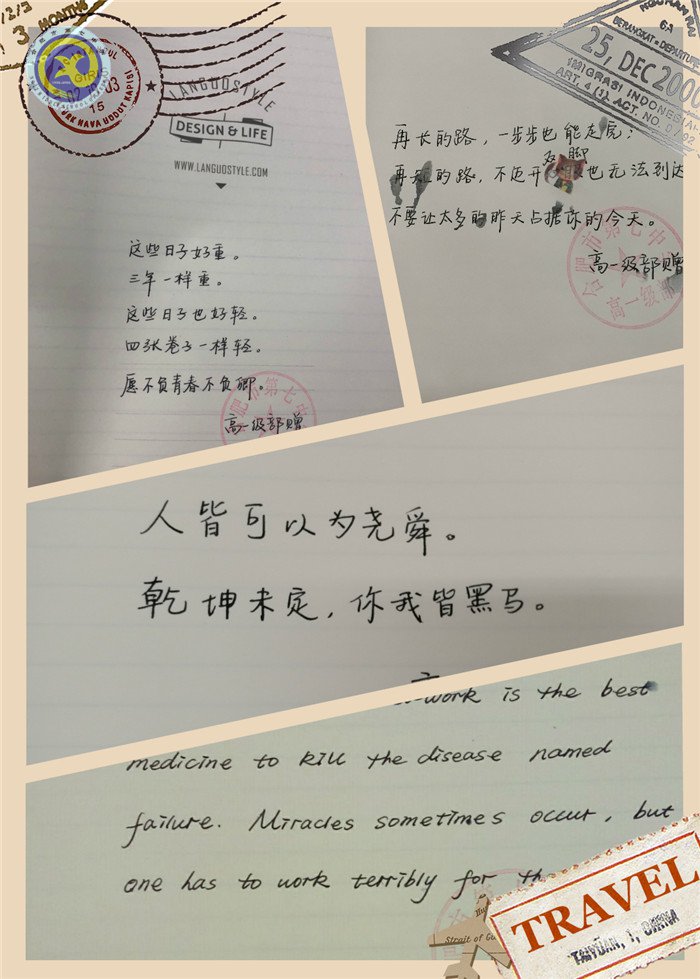 3 MONTHS
LANGUOSTYLE
DESIGN & LIFE
WWW.LANGUOSTYLE.COM
这些日子好重。
三年一样重。
这些日子也好轻。
四张卷子一样轻。
愿不负青春不负卿。
高一级部赠
6A
BERANGKAT - DEPARTURE
25, DEC 200
IMIGRASI INDONESIA
再长的路，一步步也能走完；
再短的路，不迈开双脚也无法到达
不要让太多的昨天占据你的今天。
合肥市第七中
高一级部赠
人皆可以为尧舜。
乾坤未定，你我皆黑马。
work is the best
medicine to kill the disease named
failure. Miracles sometimes occur, but
one has to work terribly for th
TRAVEL
TAIYUAN, 1, CHINA